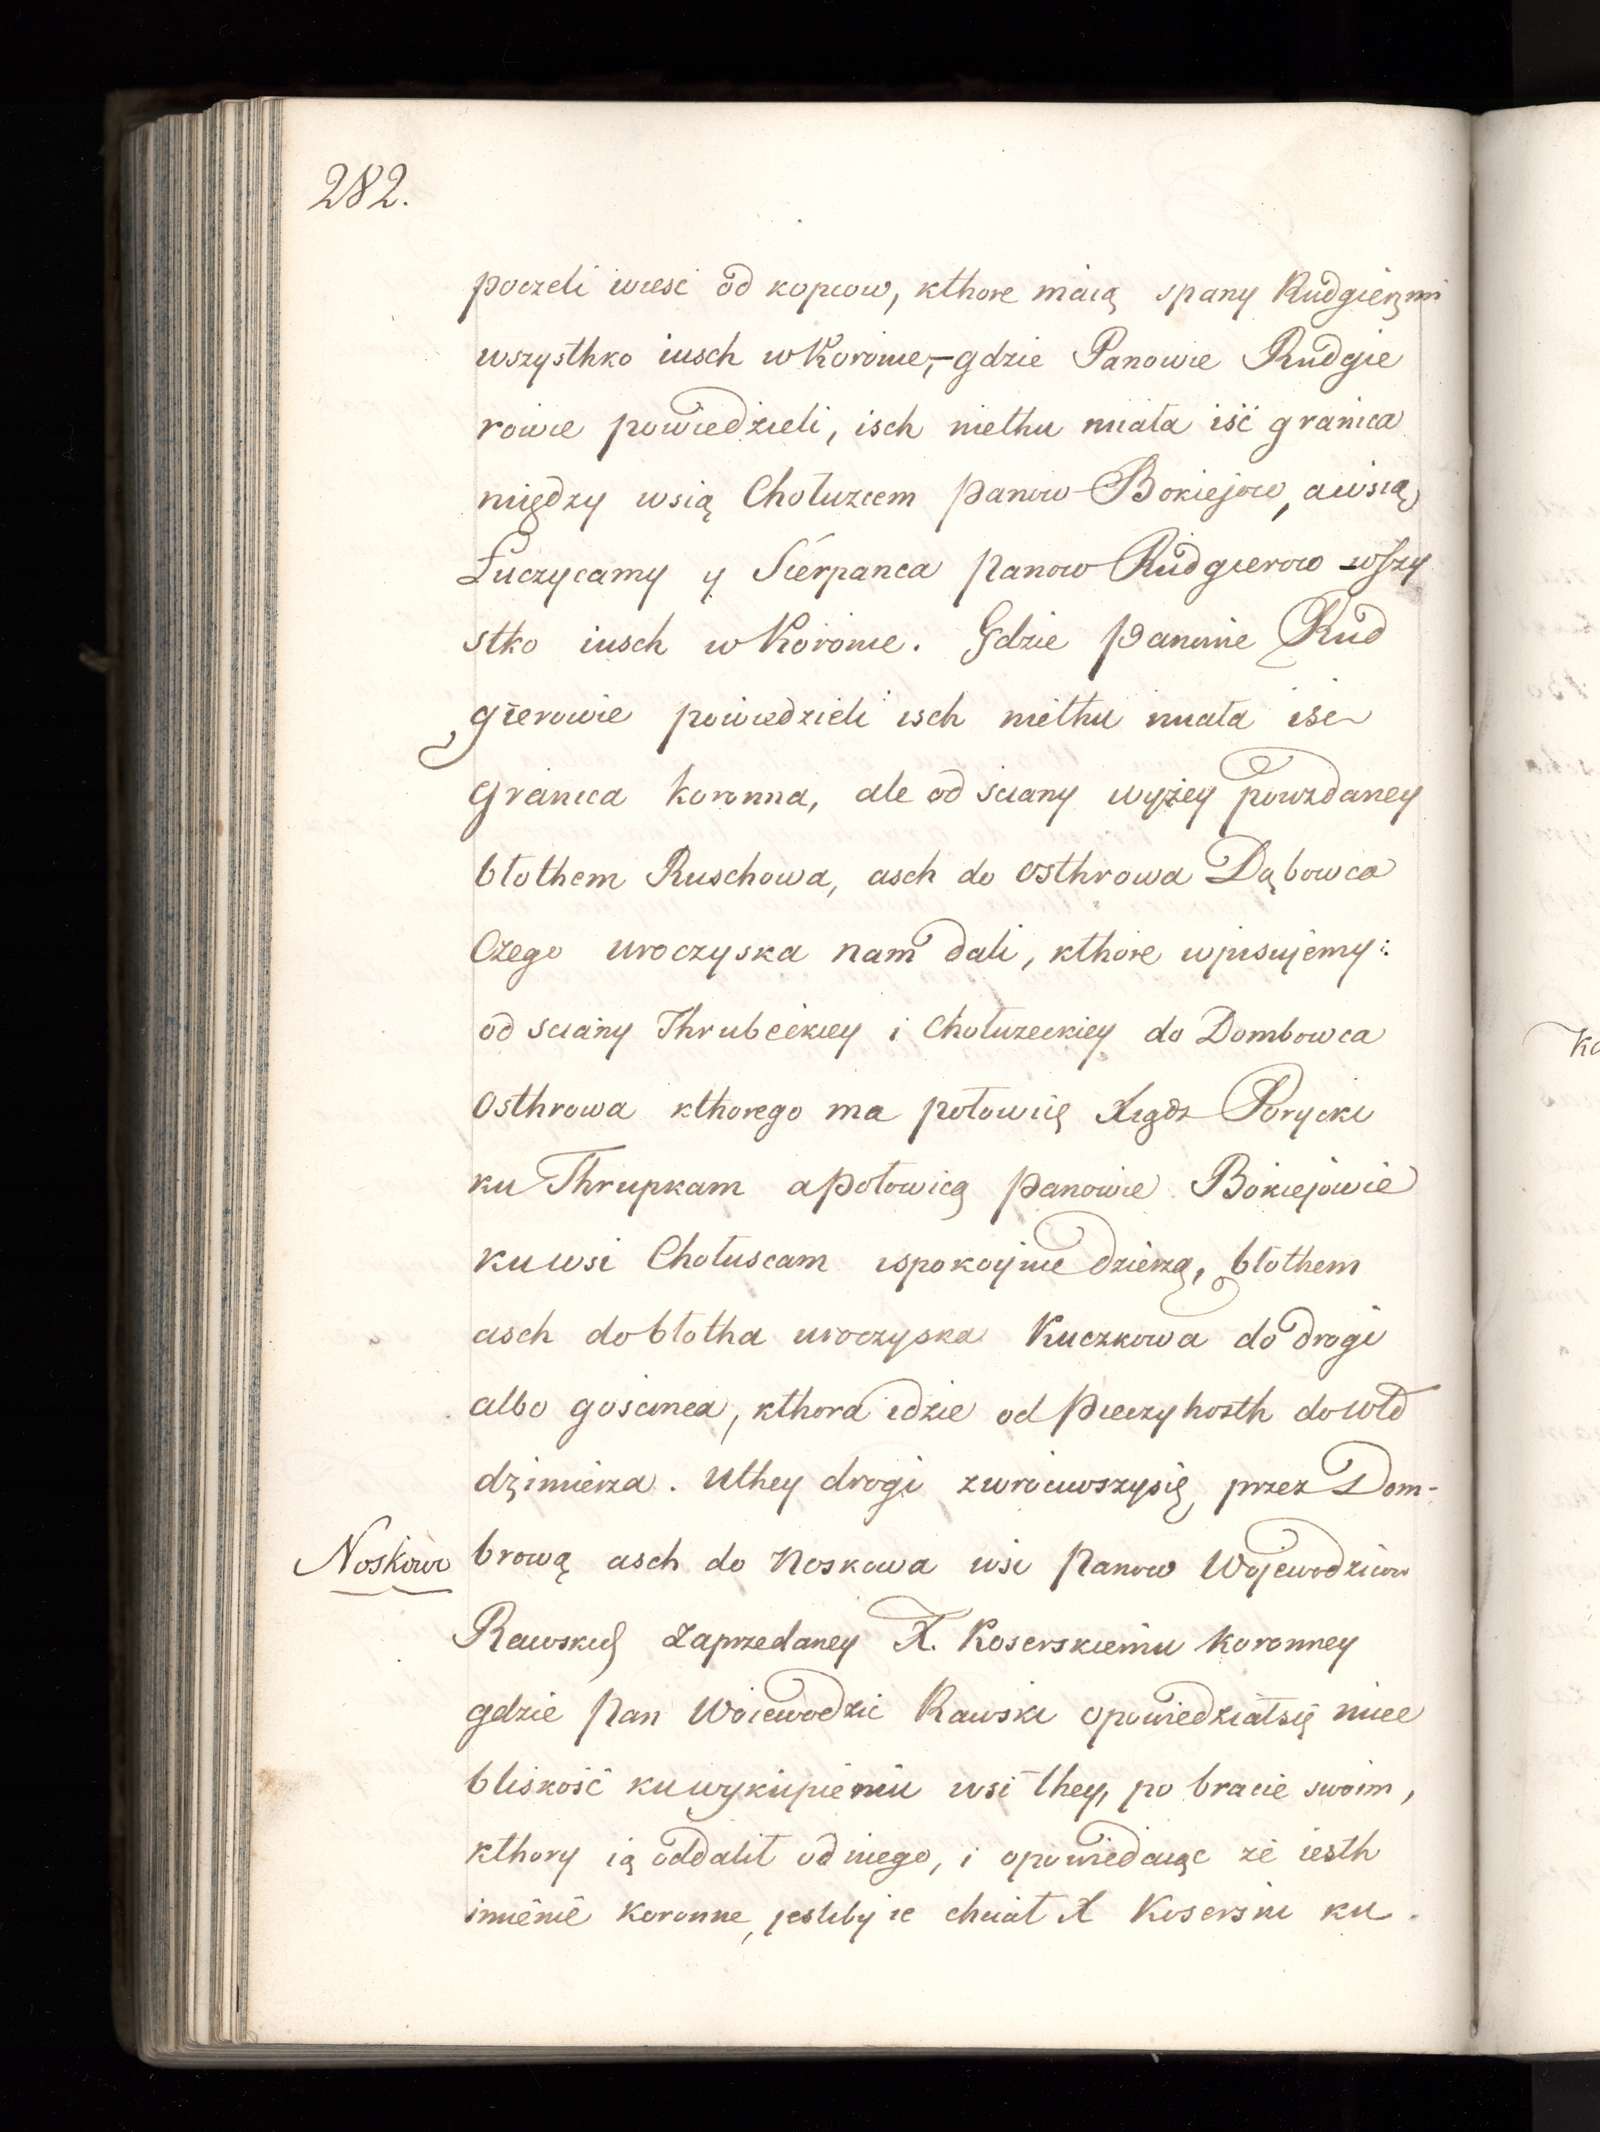 282.
poczeli wiesc od kopcow, kthore maią spany Rudgierzmi
wszysthko iusch wKoronie,-gdzie Panowie Rudgie
rowie powiedzieli, isch niethu miała iść granica
między wsią Chołuzcem panow Bokiejow, awsią
Łuczycamy y Sierpanca panow Rudgierow wszy
stko iusch wKoronie. Gdzie Panowie Rud
gierowie powiedzieli isch niethu miała ise
granica koronna, ale od sciany wyżey powzdaney
błothem Ruschowa, asch do osthrowa Dąbowca
Czego uroczyska nam dali, kthore wpisujemy:
od sciany Thrubeckiey i Chołuzeckiey do Dombowca
osthrowa kthorego ma połowicę Xiądz Porycki
ku Thrupkam apołowicą panowie Bokiejowie
kuwsi Chołuscam wspokoynie dzierzą, błothem
asch dobłotha uroczyska Kuczkowa do drogi
albo goscinca, kthora idzie od Pieczyhosth dowłod
dzimierza. Uthey drogi zwrociwszysię, przez Dom-
Noskow
brową asch do Noskowa wsi panow Wojewodzicow
Rawskich zaprzedaney X. Koserskiemu koronney
gdzie pan Woiewodzic Rawski opowiedziałsię miec
bliskość kuwykupieniu wsi they, po bracie swoim,
kthory ią oddalił odniego, i opowiedaiąc że iesth
imienie koronne, jesliby ie chciał X Koserski ku